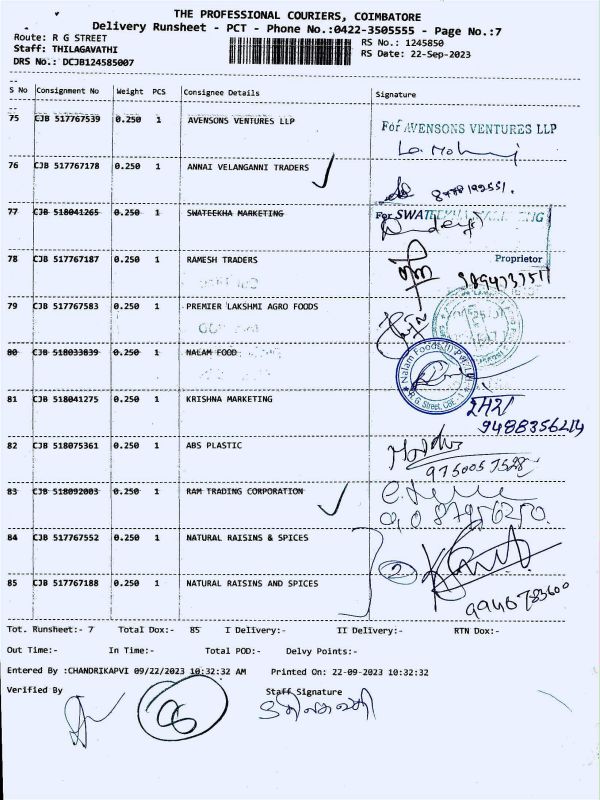 THE PROFESSIONAL COURIERS, COIMBATORE
Delivery Runsheet - PCT - Phone No.:0422-3505555 - Page No.:7
Route: R G STREET
RS No.: 1245850
Staff: THILAGAVATHI
RS Date: 22-Sep-2023
DRS No.: DCJB124585007
S No Consignment No Weight PCS Consignee Details Signature
75 CJB 517767539 0.250 1 AVENSONS VENTURES LLP
For AVENSONS VENTURES LLP
76 CJB 517767178 0.250 1 ANNAI VELANGANNI TRADERS
77 CJB 518041265 0.250 1 SWATEEKHA MARKETING
For SWATEEKHA
78 CJB 517767187 0.250 1 RAMESH TRADERS
Proprietor
79 CJB 517767583 0.250 1 PREMIER LAKSHMI AGRO FOODS
80 CJB 518033839 0.250 1 NALAM FOOD
Nalam Foods (I) Pvt Ltd
R.G. Street, CBE - 1
81 CJB 518041275 0.250 1 KRISHNA MARKETING
9488356214
82 CJB 518075361 0.250 1 ABS PLASTIC
9750057528
83 CJB 518092003 0.250 1 RAM TRADING CORPORATION
84 CJB 517767552 0.250 1 NATURAL RAISINS & SPICES
2
85 CJB 517767188 0.250 1 NATURAL RAISINS AND SPICES
9946783600
Tot. Runsheet:- 7 Total Dox:- 85 I Delivery:- II Delivery:- RTN Dox:-
Out Time:- In Time:- Total POD:- Delvy Points:-
Entered By :CHANDRIKAPVI 09/22/2023 10:32:32 AM Printed On: 22-09-2023 10:32:32
Verified By Staff Signature